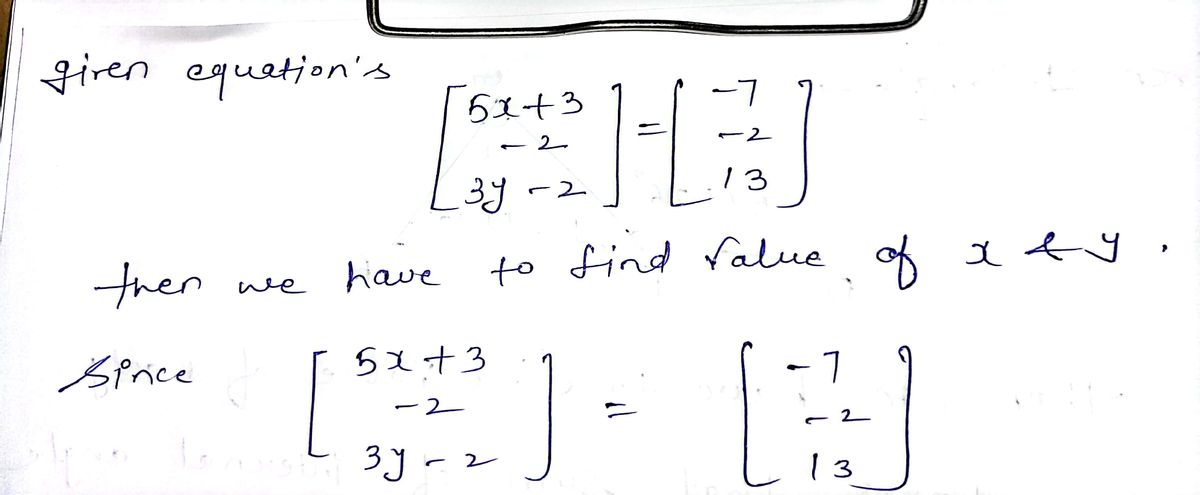 given equation's
[5x+3] = [-7]
[-2] [-2]
[3y-2] [13]
then we have to find value of x & y.
Since [5x+3] = [-7]
[-2] [-2]
[3y-2] [13]